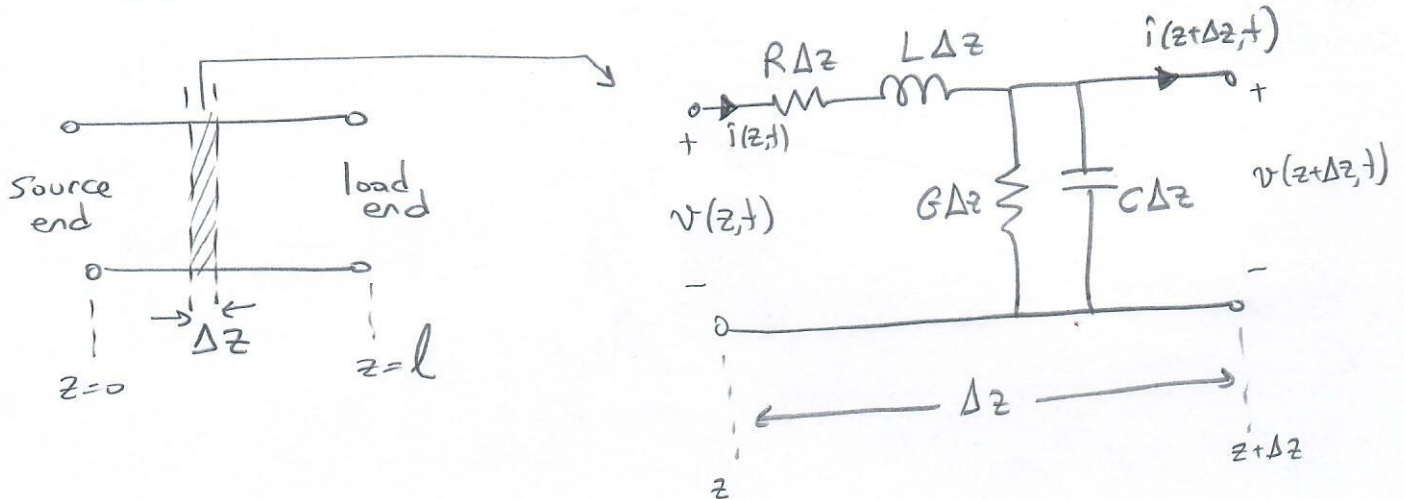 source
end
load
end
Δz
z=0
z=l
RΔz
LΔz
i(z+Δz,t)
+
i(z,t)
+
v(z,t)
GΔz
CΔz
v(z+Δz,t)
-
-
Δz
z
z+Δz